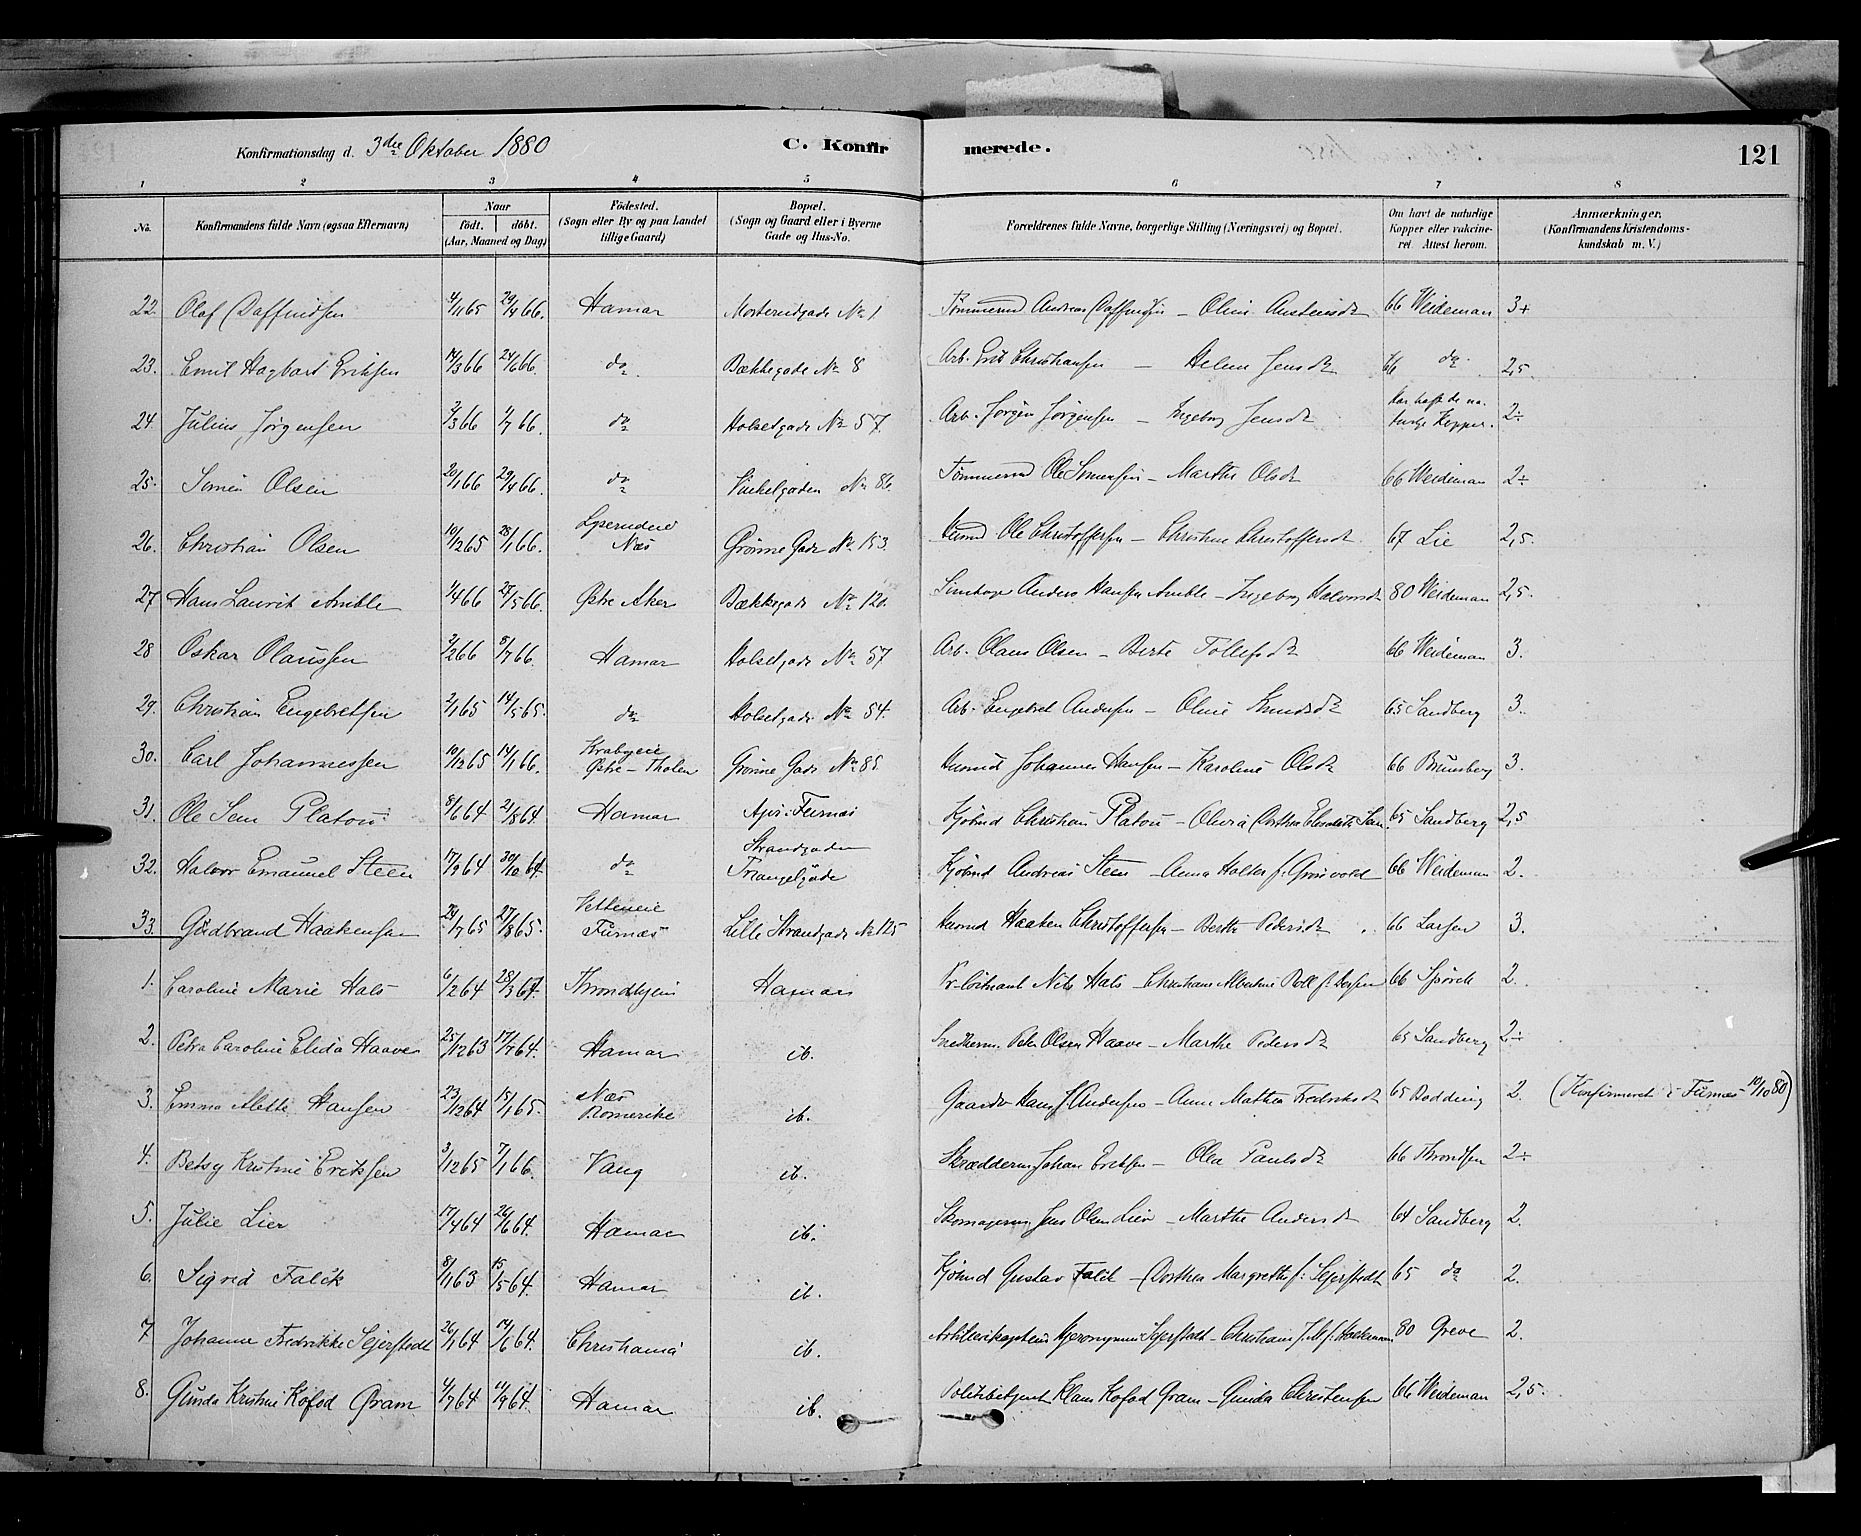 Konfirmationsdag d. 3die Oktober 1880 C. Konfir merede. 121
1 2 3 4 5 6 7 8
No. Konfirmandens fulde Navn (ogsaa Efternavn) Naar født. døbt. (Aar, Maaned og Dag) Fødested. (Sogn eller By og paa Landet tillige Gaard) Bopæl. (Sogn og Gaard eller i Byerne Gade og Hus-No. Forældrenes fulde Navne, borgerlige Stilling (Næringsvei) og Bopæl. Om havt de naturlige Kopper eller vakcineret. Attest herom. Anmærkninger, (Konfirmandens Kristendomskundskab m. V.)
22. Olaf Daffindsen 4/1 65 29/4 66. Hamar No 1 Andreas Daffindsen — 66 Weideman 3+
23. Emil Hagbart Eriksen 14/3 66 24/6 66. do Bækkegade No 8 Arb. Erik Christiansen — Helene Jensdt 66 do 2,5.
24. Julius Jørgensen 2/3 66 1/7 66. do Holsetgade No 57. Arb. Jørgen Jørgensen — Ingeborg Jensdt Har haft de naturlige Kopper. 2÷
25. Simen Olsen 20/1 66 29/4 66. do No 86 Ole Simensen — Marthe Olsdt 66 Weideman 2÷
26. Christian Olsen 10/12 65 28/1 66. Næs Grønne Gade No 153. Husmd Ole Christoffersen — Christine Christoffersdt 67 Lie 2,5.
27 Hans Laurit Amble 1/4 66 27/5 66. Østre Aker Bækkegade No 120. Anders Hansen Amble — Ingeborg Halvorsdt 80 Weideman 2,5.
28 Oskar Olaussen 2/2 66 8/7 66. Hamar Holsetgade No 57 Arb. Olaus Olsen — Berte Tollefsdt 66 Weideman 3.
29. Christian Engebretsen 2/1 65 14/5 65. do Holsetgade No 54. Arb. Engebret Andersen — Oline Knudsdt 65 Sandberg 3.
30. Carl Johannessen 10/12 65 14/1 66. Krabyeie Østre-Thoten Grønne Gade No 85. Husmd Johannes Hansen — Karoline Olsdt 66 Brunsberg 3.
31. Ole Sem Platou 8/1 64 21/8 64. Hamar Furnæs Kjøbmd Christian Platou — Olivia Dorthea Elisabeth Sem 65 Sandberg 2,5
32. Halvor Emanuel Steen 17/9 64 30/10 64. do Strandgaden Triangelgade Kjøbmd Andreas Steen — Anna Holter f. Grønvold 66 Weideman 2.
33. Gudbrand Haakensen 24/7 65 27/8 65. Vetteneie Furnæs Lille Strandgade No 125 Husmd Haaken Christoffersen — Berthe Pedersdt 66 Larsen 3.
1. Caroline Marie Hals 6/2 64 28/3 64. Throndhjem Hamar Pr.-løitnant Nils Hals — Christiane Albertine Roll 66 2.
2. Petra Caroline Elida Haave 25/12 63 17/7 64. Hamar ib. Snedkerm. Peter Olsen Haave — Marthe Pedersdt 65 Sandberg 2÷
3. Emma Mette Hansen 23/12 64 15/1 65. Næs Romerike ib. Hans Andersen — Anne Mathea Fredriksdt 65 Bødding 2. (Konfirmeret i Furnæs 10/10 80)
4. Betsy Kristine Eriksen 3/12 65 7/1 66. Vang ib. Skrædderm. Johan Eriksen — Olea Paulsdt 66 Throndsen 2÷
5. Julie Lier 17/4 64 26/6 64. Hamar ib. Skomagerm. Jens Olsen Lier — Marthe Andersdt 64 Sandberg 2.
6. Sigrid Falck 8/11 63 15/5 64. Hamar ib. Kjøbmd Gustav Falck — Dorthea Margrethe f. Sejerstedt 65 do 2.
7 Johanne Fredrikke Sejerstedt 26/1 64 14/6 64. Christiania ib. Artillerikaptein Hieronymus Sejerstedt — 80 Greve 2.
8. Gunda Kristine Kofod Gram 4/7 64 11/9 64. Hamar ib. Politibetjent Klaus Kofod Gram — Gunda Christensen 66 Weideman 2,5.